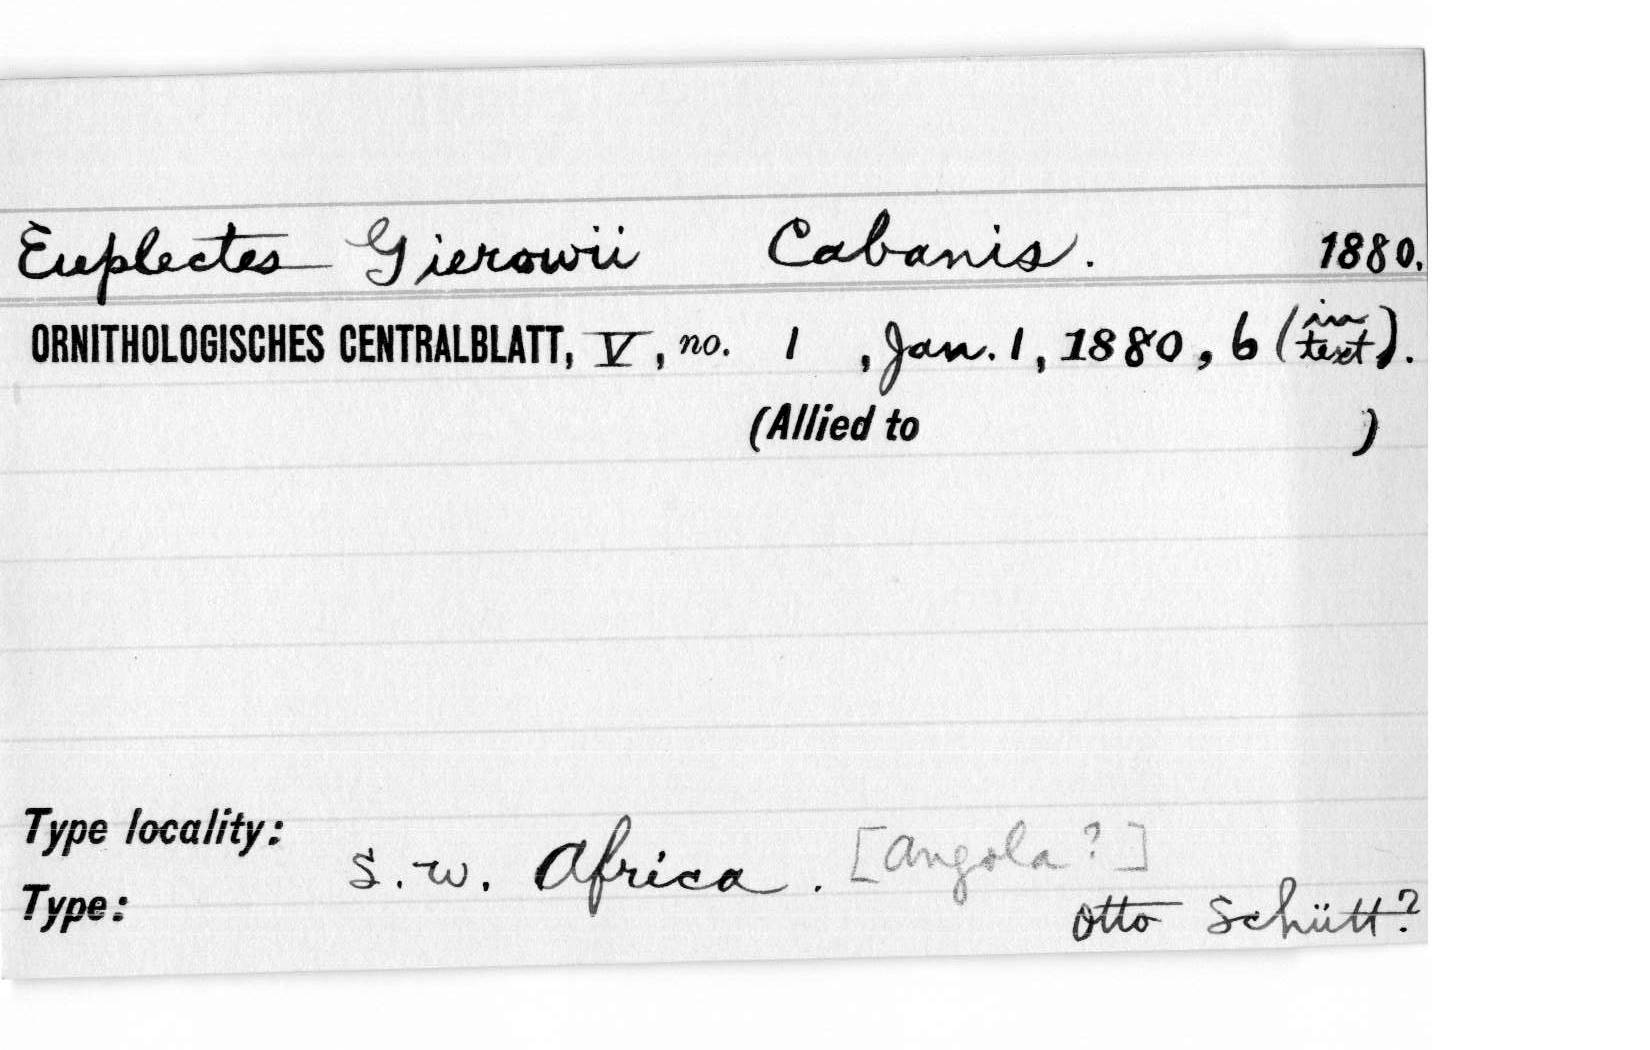 Euplectes Gierowii Cabanis. 1880.
ORNITHOLOGISCHES CENTRALBLATT, V, no. 1, Jan. 1, 1880, 6 (in text).
(Allied to )
Type locality:
S. W. Africa. [Angola?]
Type:
Otto Schütt?